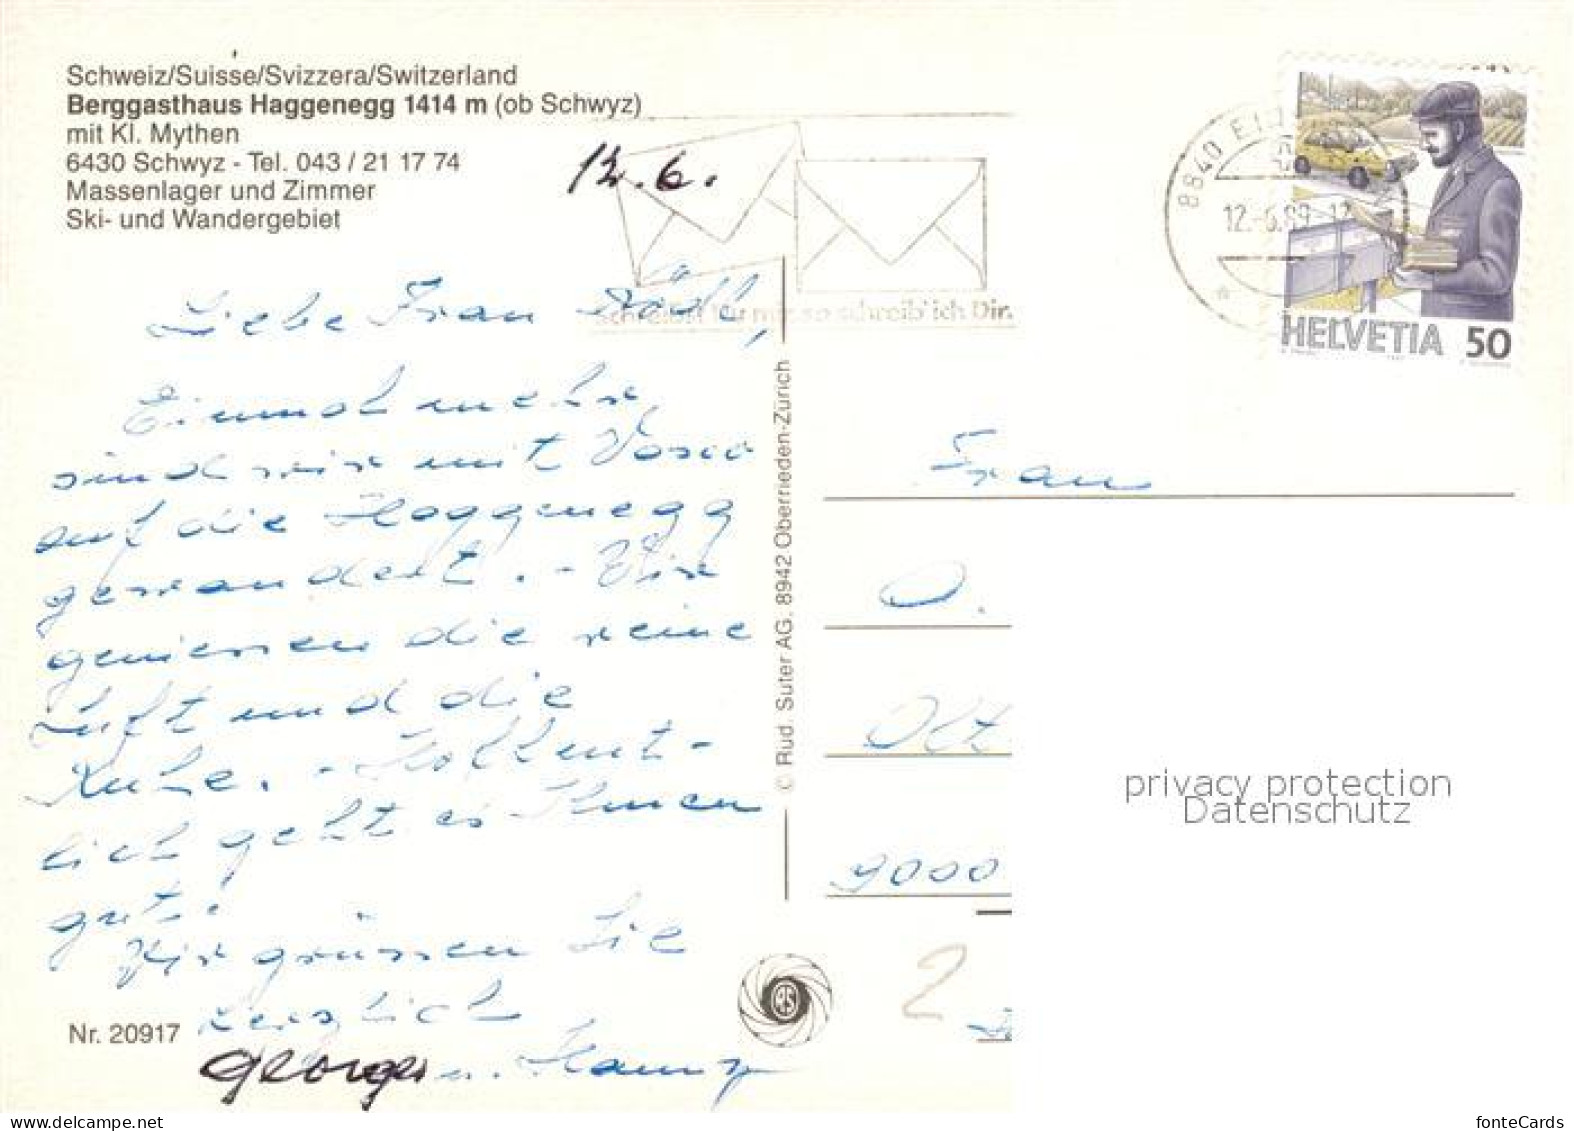 Schweiz/Suisse/Svizzera/Switzerland
Berggasthaus Haggenegg 1414 m (ob Schwyz)
mit Kl. Mythen
6430 Schwyz - Tel. 043 / 21 17 74
Massenlager und Zimmer
Ski- und Wandergebiet
12.6.
Liebe Frau
Einmal mehr
sind wir mit Vasco
auf die Haggenegg
gewandert. - Wir
geniessen die reine
Luft und die
Ruhe. - Hoffent-
lich geht es Ihnen
gut.
Wir grüssen Sie
herzlich
Georges u.
Nr. 20917
© Rud. Suter AG, 8942 Oberrieden-Zürich
RS
schreibst Du mir, so schreib' ich Dir.
8840
12.-6.89-12
HELVETIA 50
Frau
O.
9000
2
privacy protection
Datenschutz
www.delcampe.net
fonteCards